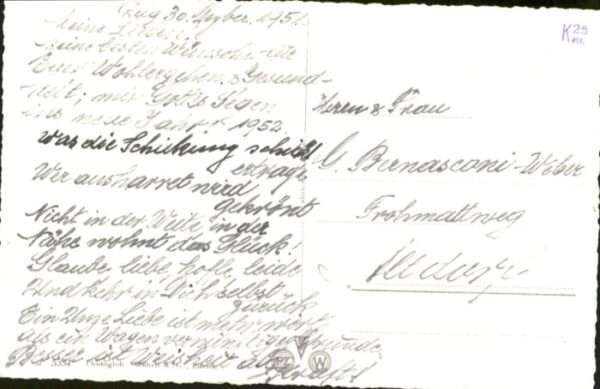 Zug 30. Dezbr. 1951.
Meine Lieben!
Meine besten Wünsche für
Euer Wohlergehen & Gesund-
heit; mit Gottes Segen
ins neue Jahr 1952
Was die Schickung schickt
ertrage
Wer ausharret wird
gekrönt
Nicht in der Weite in der
Nähe wohnt das Glück!
Glaube liebe hoffe leide
Und kehr in Dich selbst
zurück
Ein Unze Liebe ist mehr wert
als ein Wagen voll
Besser ist Weisheit als
Herrn & Frau
Bernasconi-Weber
Frohmattweg
K 25